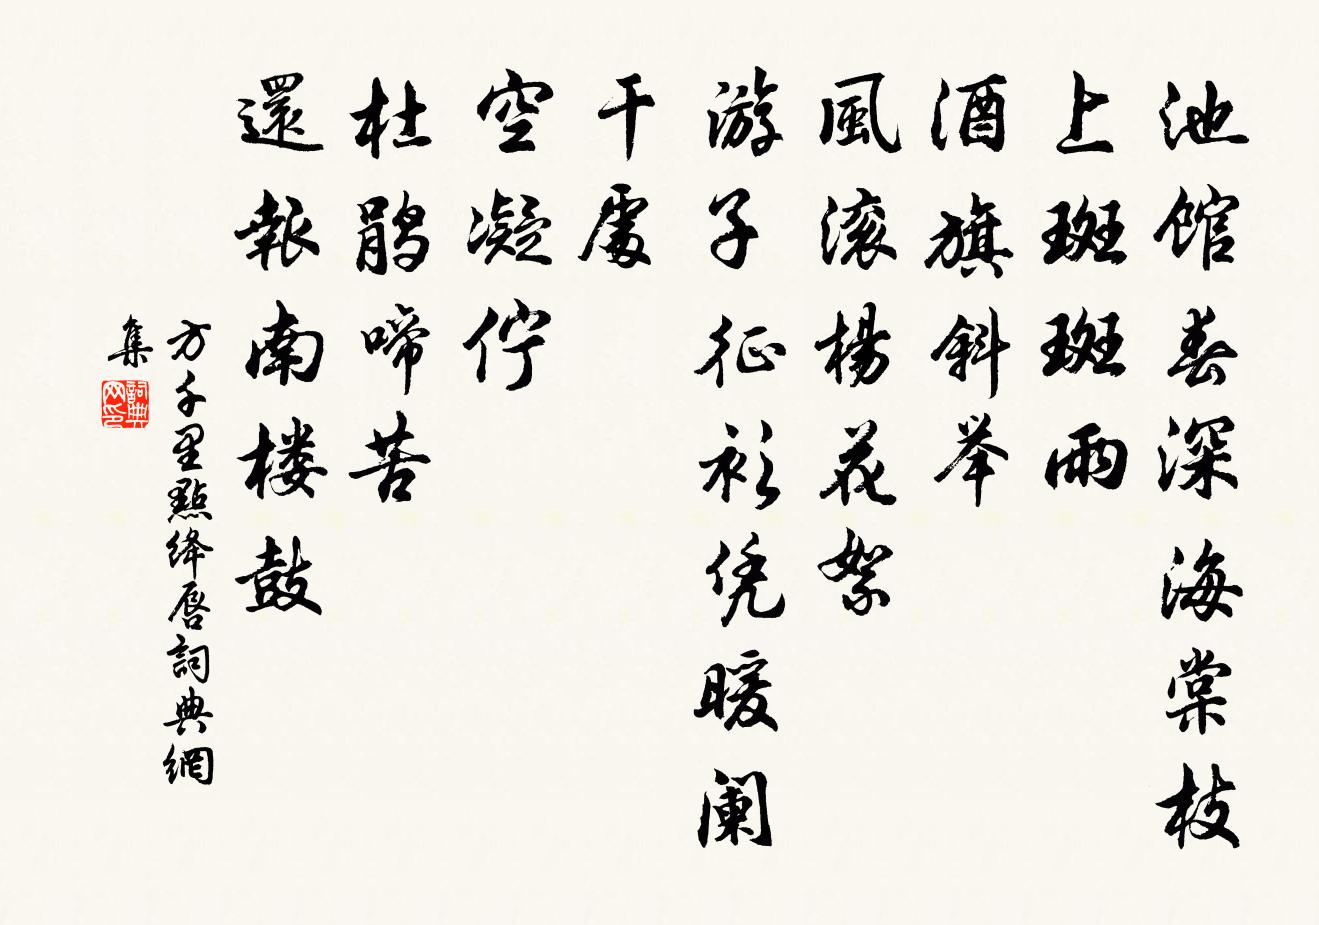 池馆春深海棠枝
上斑斑雨
酒旗斜举
風滚楊花絮
游子征衫凭暖阑
干處
空凝佇
杜鹃啼苦
還報南楼鼓
方千里點绛唇詞典網
集
詞典网印